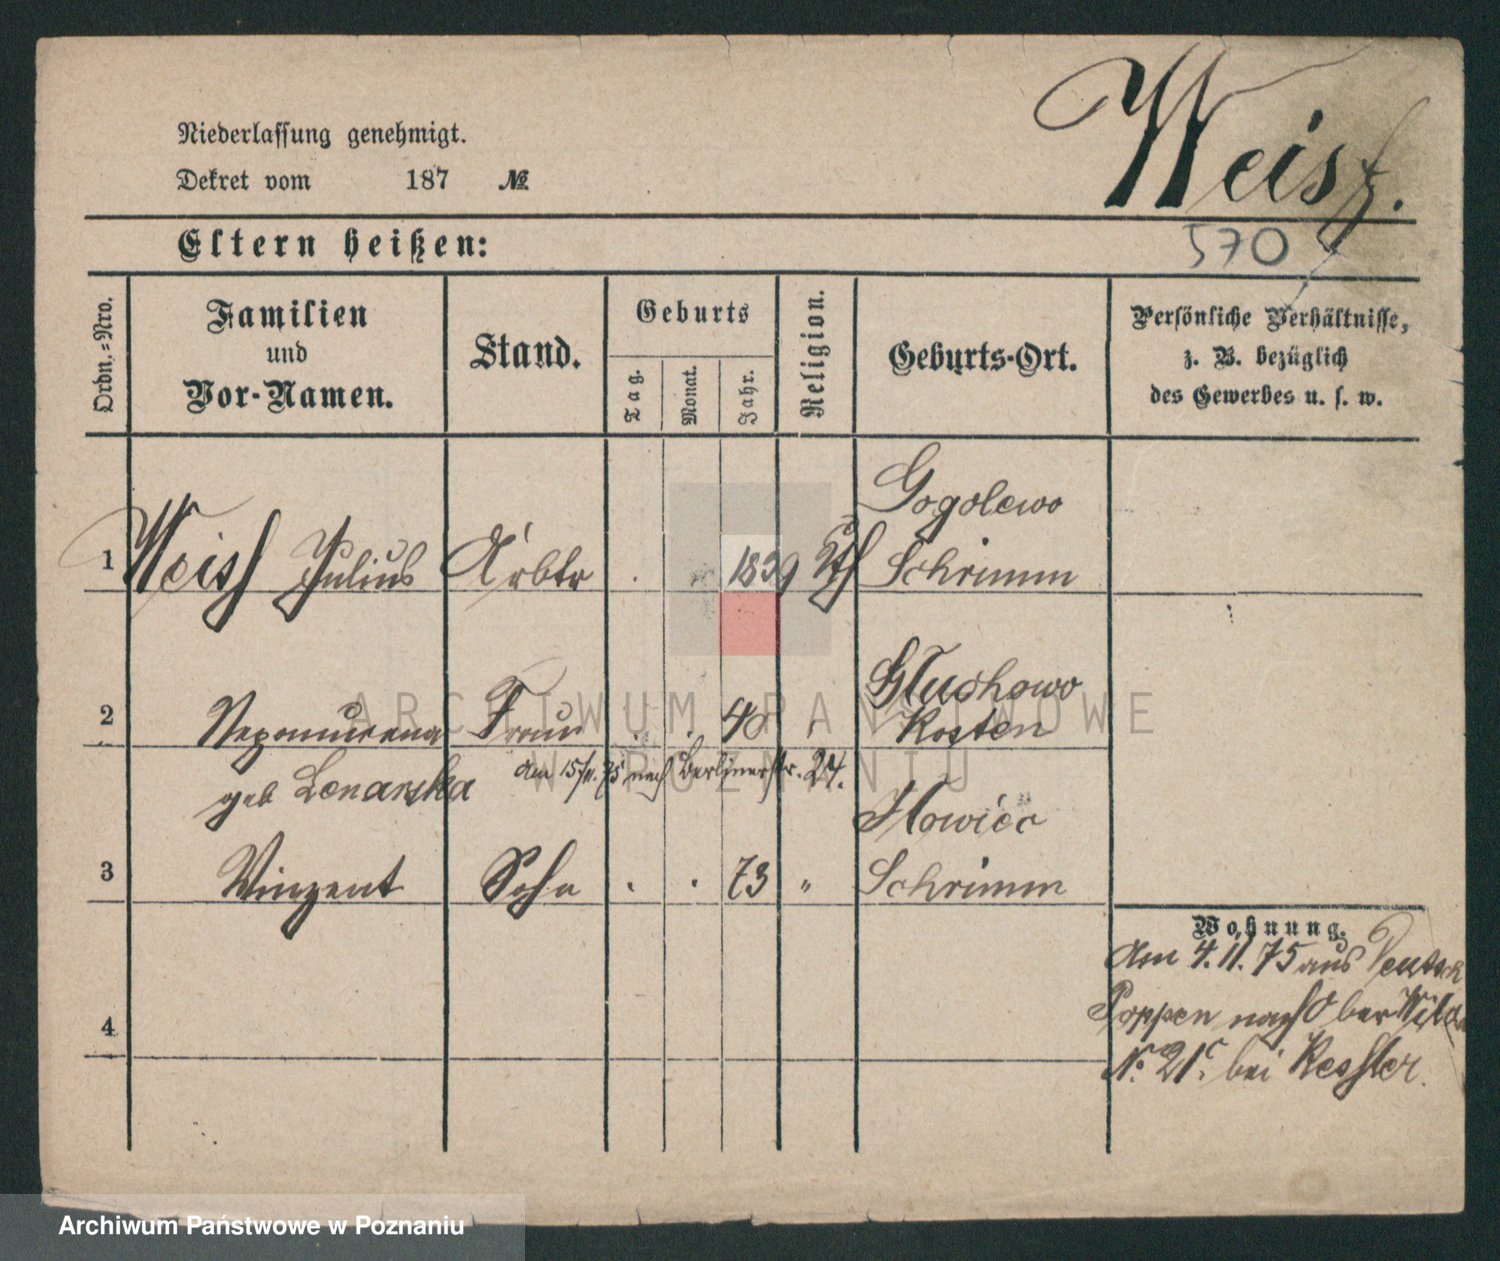 Weiß.
Niederlassung genehmigt.
Dekret vom 187 №
570
Eltern heißen:
Ordn.=Nro.
Familien
und
Vor-Namen.
Stand.
Geburts
Tag.
Monat.
Jahr.
Religion.
Geburts-Ort.
Persönliche Verhältnisse,
z. B. bezüglich
des Gewerbes u. s. w.
Gogolewo
1 Weiß Julius Arbtr . . 1839 kth Schrimm
Gluchowo
2 Nepomucena Frau . . 48 " Kosten
geb Lenarska am 15/11.75 nach Berlinerstr. 27.
Howiec
3 Vinzent Sohn . . 73 " Schrimm
Wohnung.
Am 4.11.75 aus Deutsch
Poppen nach Ober Wilda
4
No 21c. bei Kessler.
ARCHIWUM PAŃSTWOWE
W POZNANIU
Archiwum Państwowe w Poznaniu